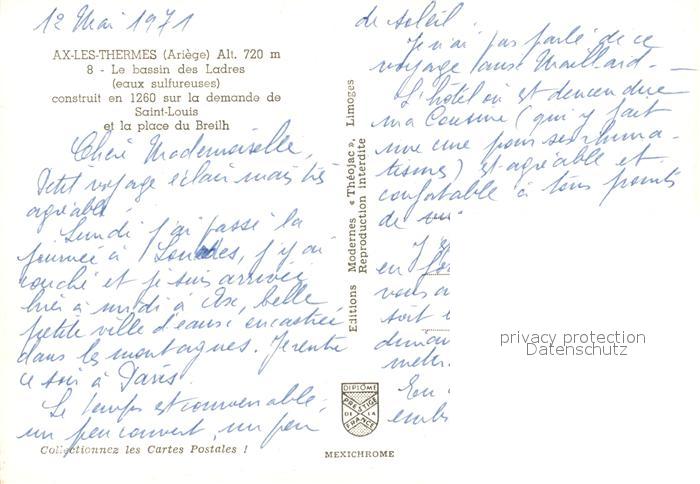 12 Mai 1971
AX-LES-THERMES (Ariège) Alt. 720 m
8 - Le bassin des Ladres
(eaux sulfureuses)
construit en 1260 sur la demande de
Saint-Louis
et la place du Breilh
Chère Mademoiselle,
Petit voyage éclair mais très
agréable.
Lundi j'ai passé la
journée à Lourdes, j'y ai
couché et je suis arrivée
hier à midi à Ax, belle
petite ville d'eaux encastrée
dans les montagnes. Je rentre
ce soir à Paris.
Le temps est convenable,
un peu couvert, un peu
Collectionnez les Cartes Postales !
Editions Modernes « Théojac », Limoges
Reproduction interdite
DIPLÔME
PRESTIGE
DE LA
FRANCE
MEXICHROME
de soleil.
Je n'ai pas parlé de ce
voyage aux Maillard. —
L'hôtel où est descendue
ma Cousine (qui y fait
une cure pour ses rhuma-
tismes) est agréable et
confortable à tous points
de vue
en
vous a
soit
En
privacy protection
Datenschutz